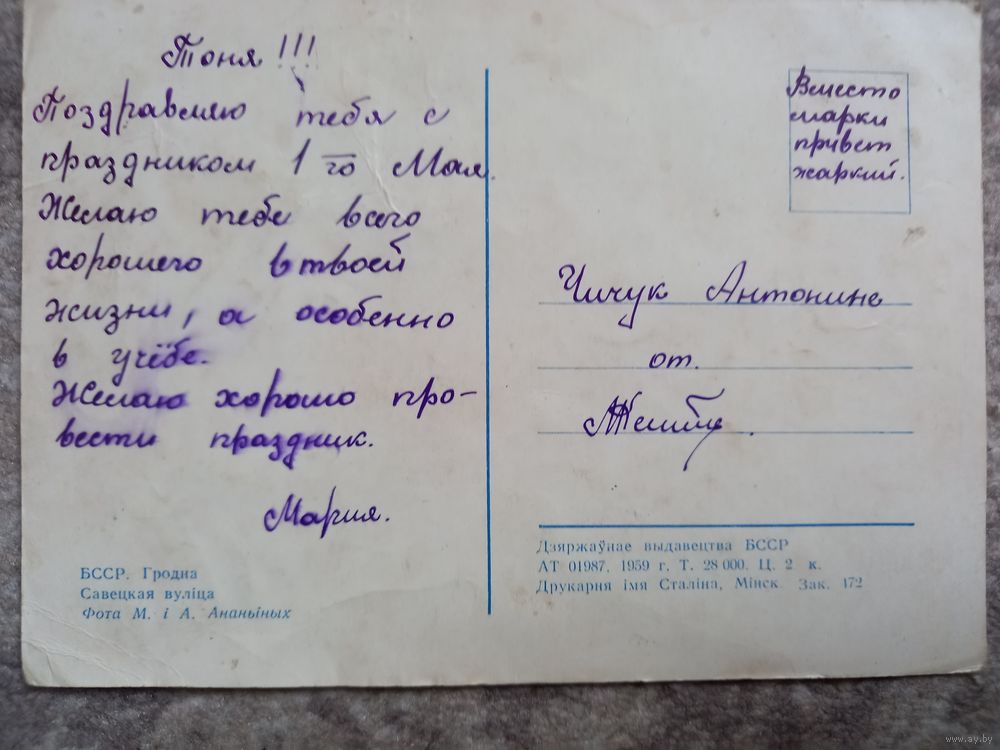 Тоня !!!
Поздравляю тебя с
праздником 1 го Мая.
Желаю тебе всего
хорошего в твоей
жизни, а особенно
в учёбе.
Желаю хорошо про-
вести праздник.
Мария.
БССР. Гродна
Савецкая вуліца
Фота М. і А. Ананьіных
Вместо
марки
привет
жаркий.
Чичук Антонине
от.
Дзяржаўнае выдавецтва БССР
АТ 01987. 1959 г. Т. 28 000. Ц. 2 к.
Друкарня імя Сталіна, Мінск. Зак. 172
www.ay.by